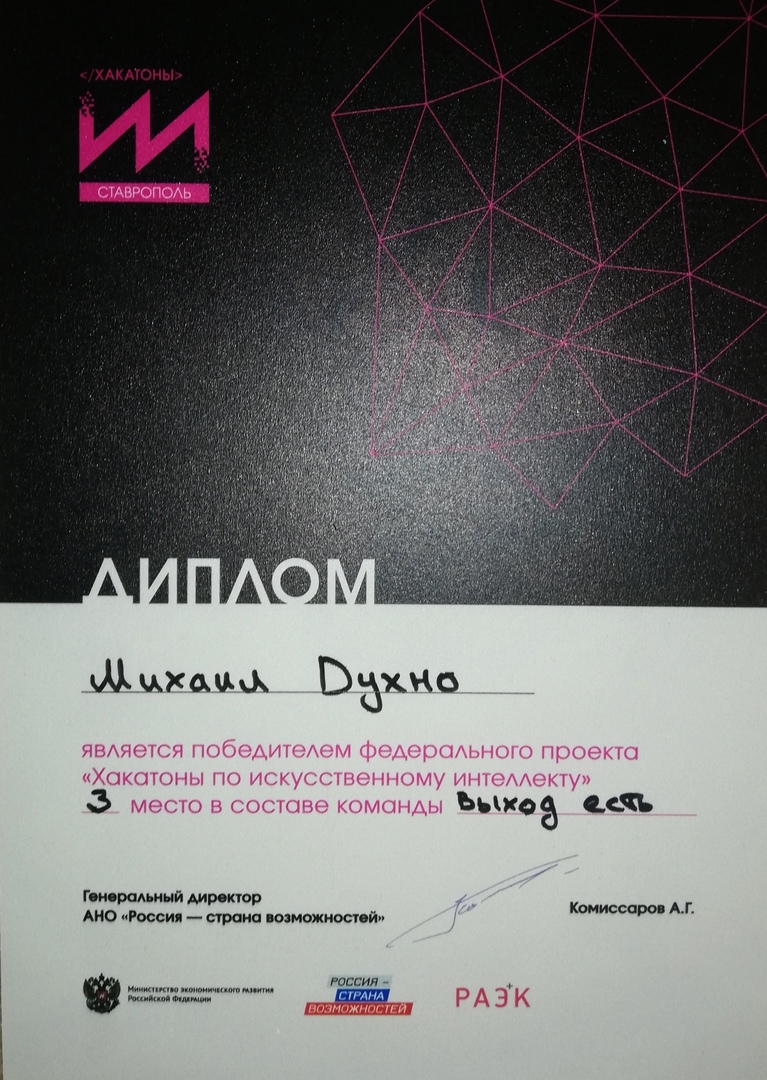 </ХАКАТОНЫ>
ИИ
СТАВРОПОЛЬ
ДИПЛОМ
Михаил Духно
является победителем федерального проекта
«Хакатоны по искусственному интеллекту»
3 место в составе команды Выход есть
Генеральный директор
АНО «Россия — страна возможностей»
Комиссаров А.Г.
Министерство экономического развития
Российской Федерации
РОССИЯ –
СТРАНА
ВОЗМОЖНОСТЕЙ
РАЭК